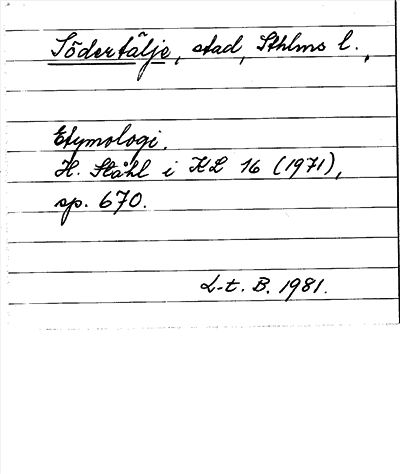 Södertälje, stad, Sthlms l.,
Etymologi.
H. Ståhl i KL 16 (1971),
sp. 670.
L-t. B. 1981.